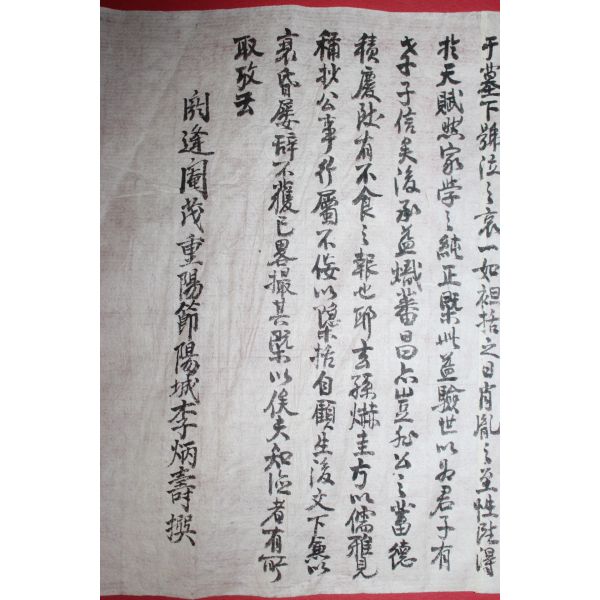 于墓下號泣之哀一如袒括之日肖胤之至性陟得
於天賦然家學之純正槩此益驗世以爲君子有
君子子信矣後承益熾蕃昌亦豈非公之蓄德
積慶陟有不食之報也耶玄孫爀圭方以儒雅見
稱抄公事行屬不侫以隱括自顧生後文下兼以
衰昏屢辭不獲已畧撮其槩以俟夫知德者有所
取攷云
閼逢閹茂重陽節陽城李炳壽撰